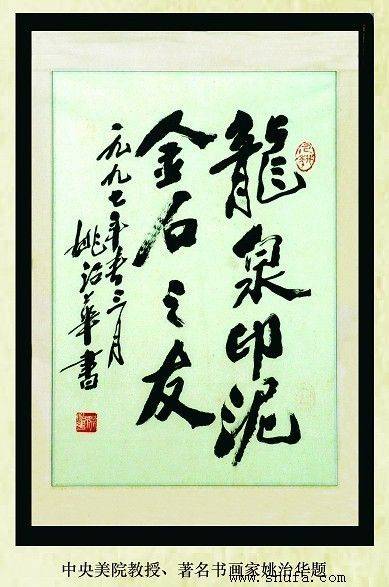 龍泉印泥
金石之友
一九九七年春三月
姚治華書
www.shufa.com
中央美院教授、著名书画家姚治华题